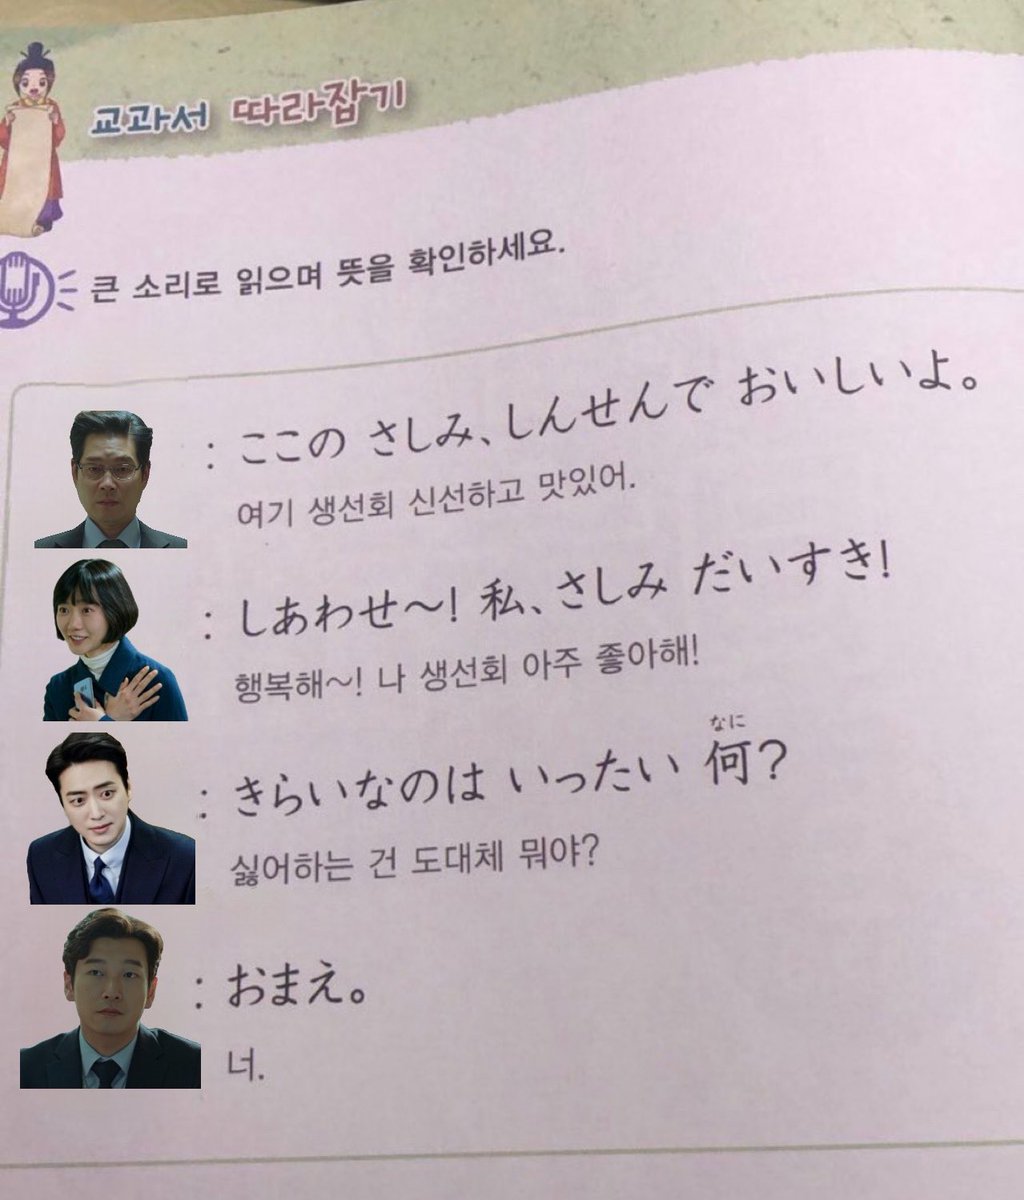 교과서 따라잡기
큰 소리로 읽으며 뜻을 확인하세요.
: ここの さしみ、しんせんで おいしいよ。
여기 생선회 신선하고 맛있어.
: しあわせ〜! 私、さしみ だいすき!
행복해~! 나 생선회 아주 좋아해!
なに
: きらいなのは いったい 何?
싫어하는 건 도대체 뭐야?
: おまえ。
너.